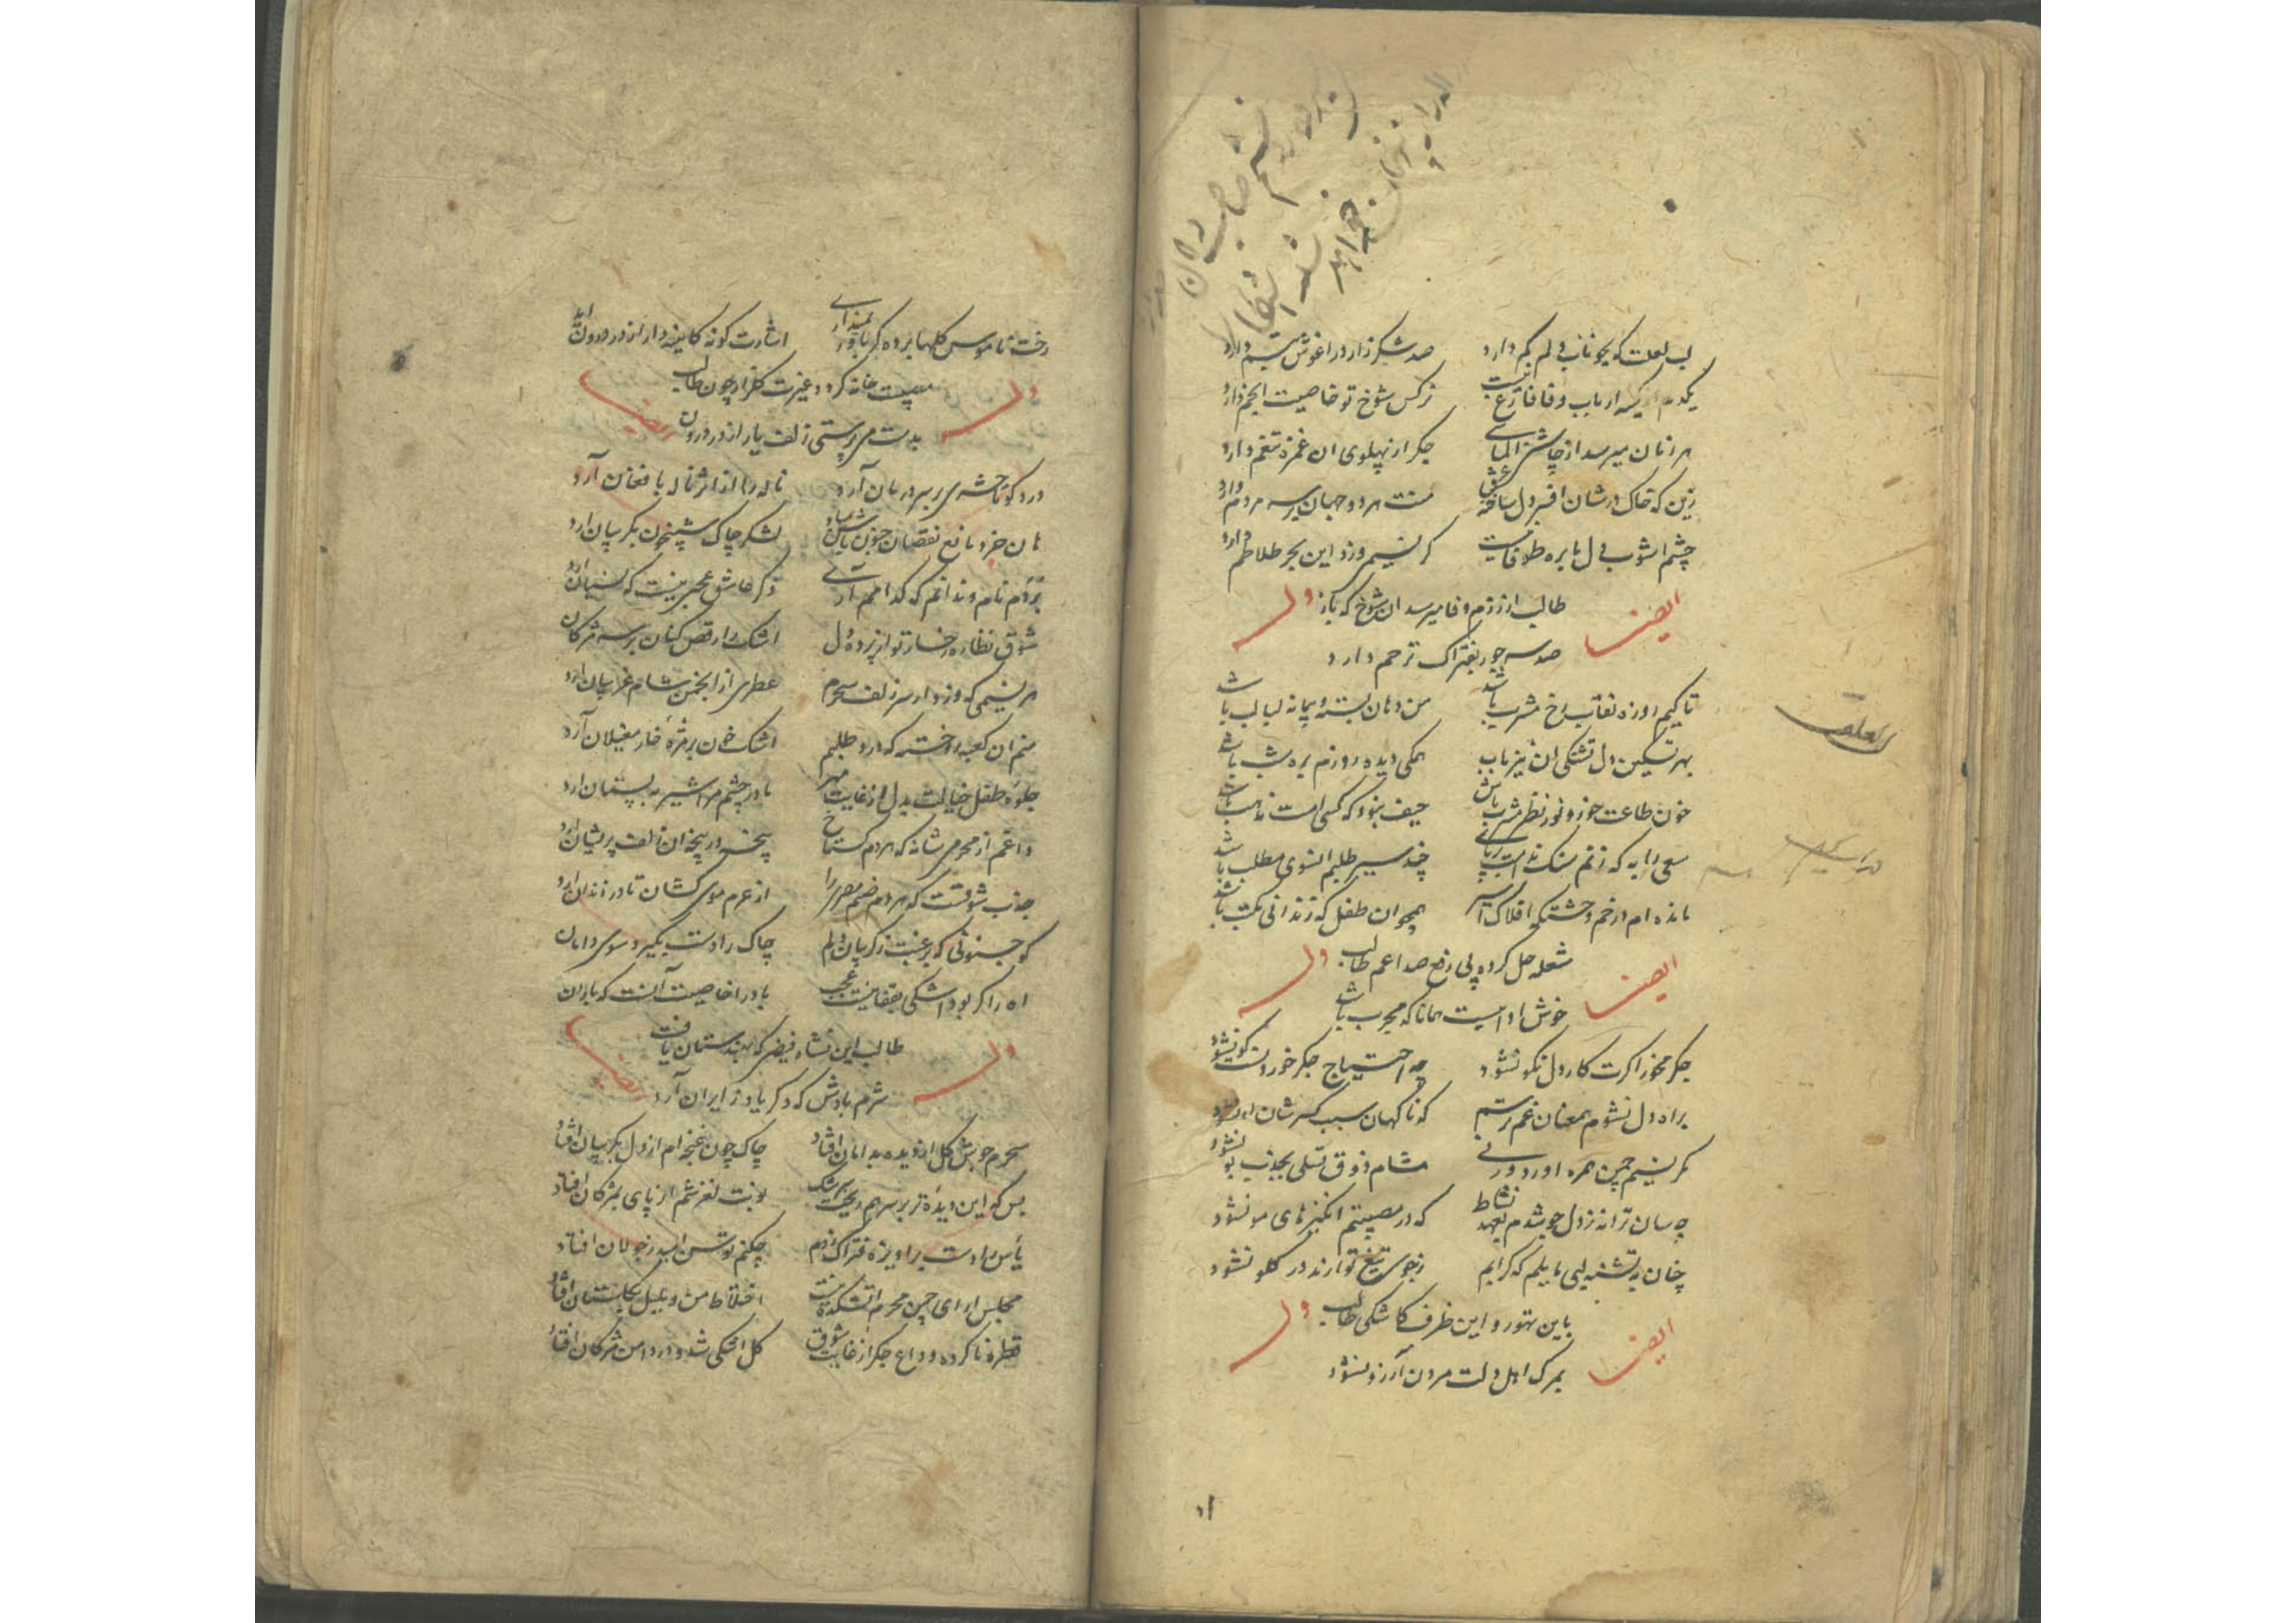 لب لعلت که چو نایاب دلم کم دارد صد شکرزار در اغوش تبسم دارد
یکدم از کیسه ارباب وفا فارغ نیست نرکس شوخ تو خاصیت انجم دارد
هر زمان میرسد از چاشنی الماسی جکر از پهلوی ان غمزه تنعم دارد
زین که خاک درشان افسر دل ساخته عشق منت هر دو جهان بر سر مردم دارد
چشم اشوب دل ما بره طوفانیست کر نسیم وزد این بحر طلاطم دارد
طالب از بزم وفا میرسد ان شوخ که باز
ایضا وله
صد سر جور بفتراک ترحم دارد
تا کیم روزه نقاب رخ مشرب باشد من دهان بسته و پیمانه لبالب باشد
بهر تسکین دل تشنکی ان نیز باب همکی دیده روزم بره شب باشد
خون طاعت خور و نور نظر مشرب باش حیف نبود که کسی امت مذهب باشد
سعی را به که زنم سنک ندامت بر پای چند سیر طلبم انسوی مطلب باشد
مانده ام از خم وحشتکه افلاک اسیر همچو ان طفل که زندانی مکتب باشد
شعله حل کرده پی رفع صداعم طالب
ایضا وله
خوش دوائیست همانا که مجرب باشد
جکر مخور اکرت کار دل نکو نشود چه احتیاج جکر خوردنست کو نشود
براه دل نشوم همعنان غم ترسم که ناکهان سبب کسر شان او نشود
مکر نسیم چمن همره اورد ورنی مشام ذوق تسلی بجذب بو نشود
چه سان ترانه ز دل جوشدم بعهد نشاط که در مصیبتم انکیز های مو نشود
چنان به تشنه لبی مایلم که کر آیم ز جوی تیغ تو ابم در کلو نشود
باین تهور و این ظرف کاشکی طالب
ایضا وله
بمرک اهل دلت مردن آرزو نشود
رخت ناموس کلها برده کر باور نمیداری اشارت کونه کاینه دار از در درون آید
بیست خانه کردد غیرت کلزار چون طالب
وله ایضا
بدست می پرستی زلف یار از در درون
درد کو تا حشری بر سر درمان آرد ناله را از اثر ناله بافغان آرد
هان خرد مانع نقصان جنون باش مباد لشکر چاک شبیخون بکریبان ارد
بردم نام و ندانم که کدامم آری ذکر عاشق عجبی نیست که نسیان ارد
شوق نظاره رخسار تو از پرده دل اشک را رقص کنان بر سر مژکان
هر نسیمی که وزد از سر زلف سحرم عطری از انجمن شام غریبان ارد
منم ان کعبه روخسته که در طلبم اشک خون بر مژه خار مغیلان آرد
جلوه طفل خیالت بدل از غایت مهر مادر چشم مرا شیر به پستان ارد
داغم از محرمی شانه که هر دم کستاخ پنجه در پنجه ان زلف پریشان ارد
جذب شوقست که هر دم صنم مصر را از حرم موی کشان تا در زندان ارد
کو جنونی که برغبت ز کریبان دلم چاک را دست بکیرد سوی دامان
اه را کر بود اشکی ز قفا نیست عجب باد را خاصیت آنست که باران
طالب این نشاء فیض که بهندستان یافت
وله ایضا
شرم بادش که دکر یاد ز ایران آرد
سحرم جوش کل از دیده بدامان افتاد چاک چون غنچه ام از دل بکریبان افتاد
بس که این دیده تر بر سر هم ریخت سرشک نوبت لغزشم از پای بمژکان افتاد
یأس را دست برآویزه فتراک زدم چکنم توسن امید ز جولان افتاد
مجلس ارای چمن محرم اتشکده نیست اختلاط من و بلبل بکلستان افتاد
قطره نا کرده وداع جکر از غایت شوق کل اشکی شد و در دامن مژکان افتاد